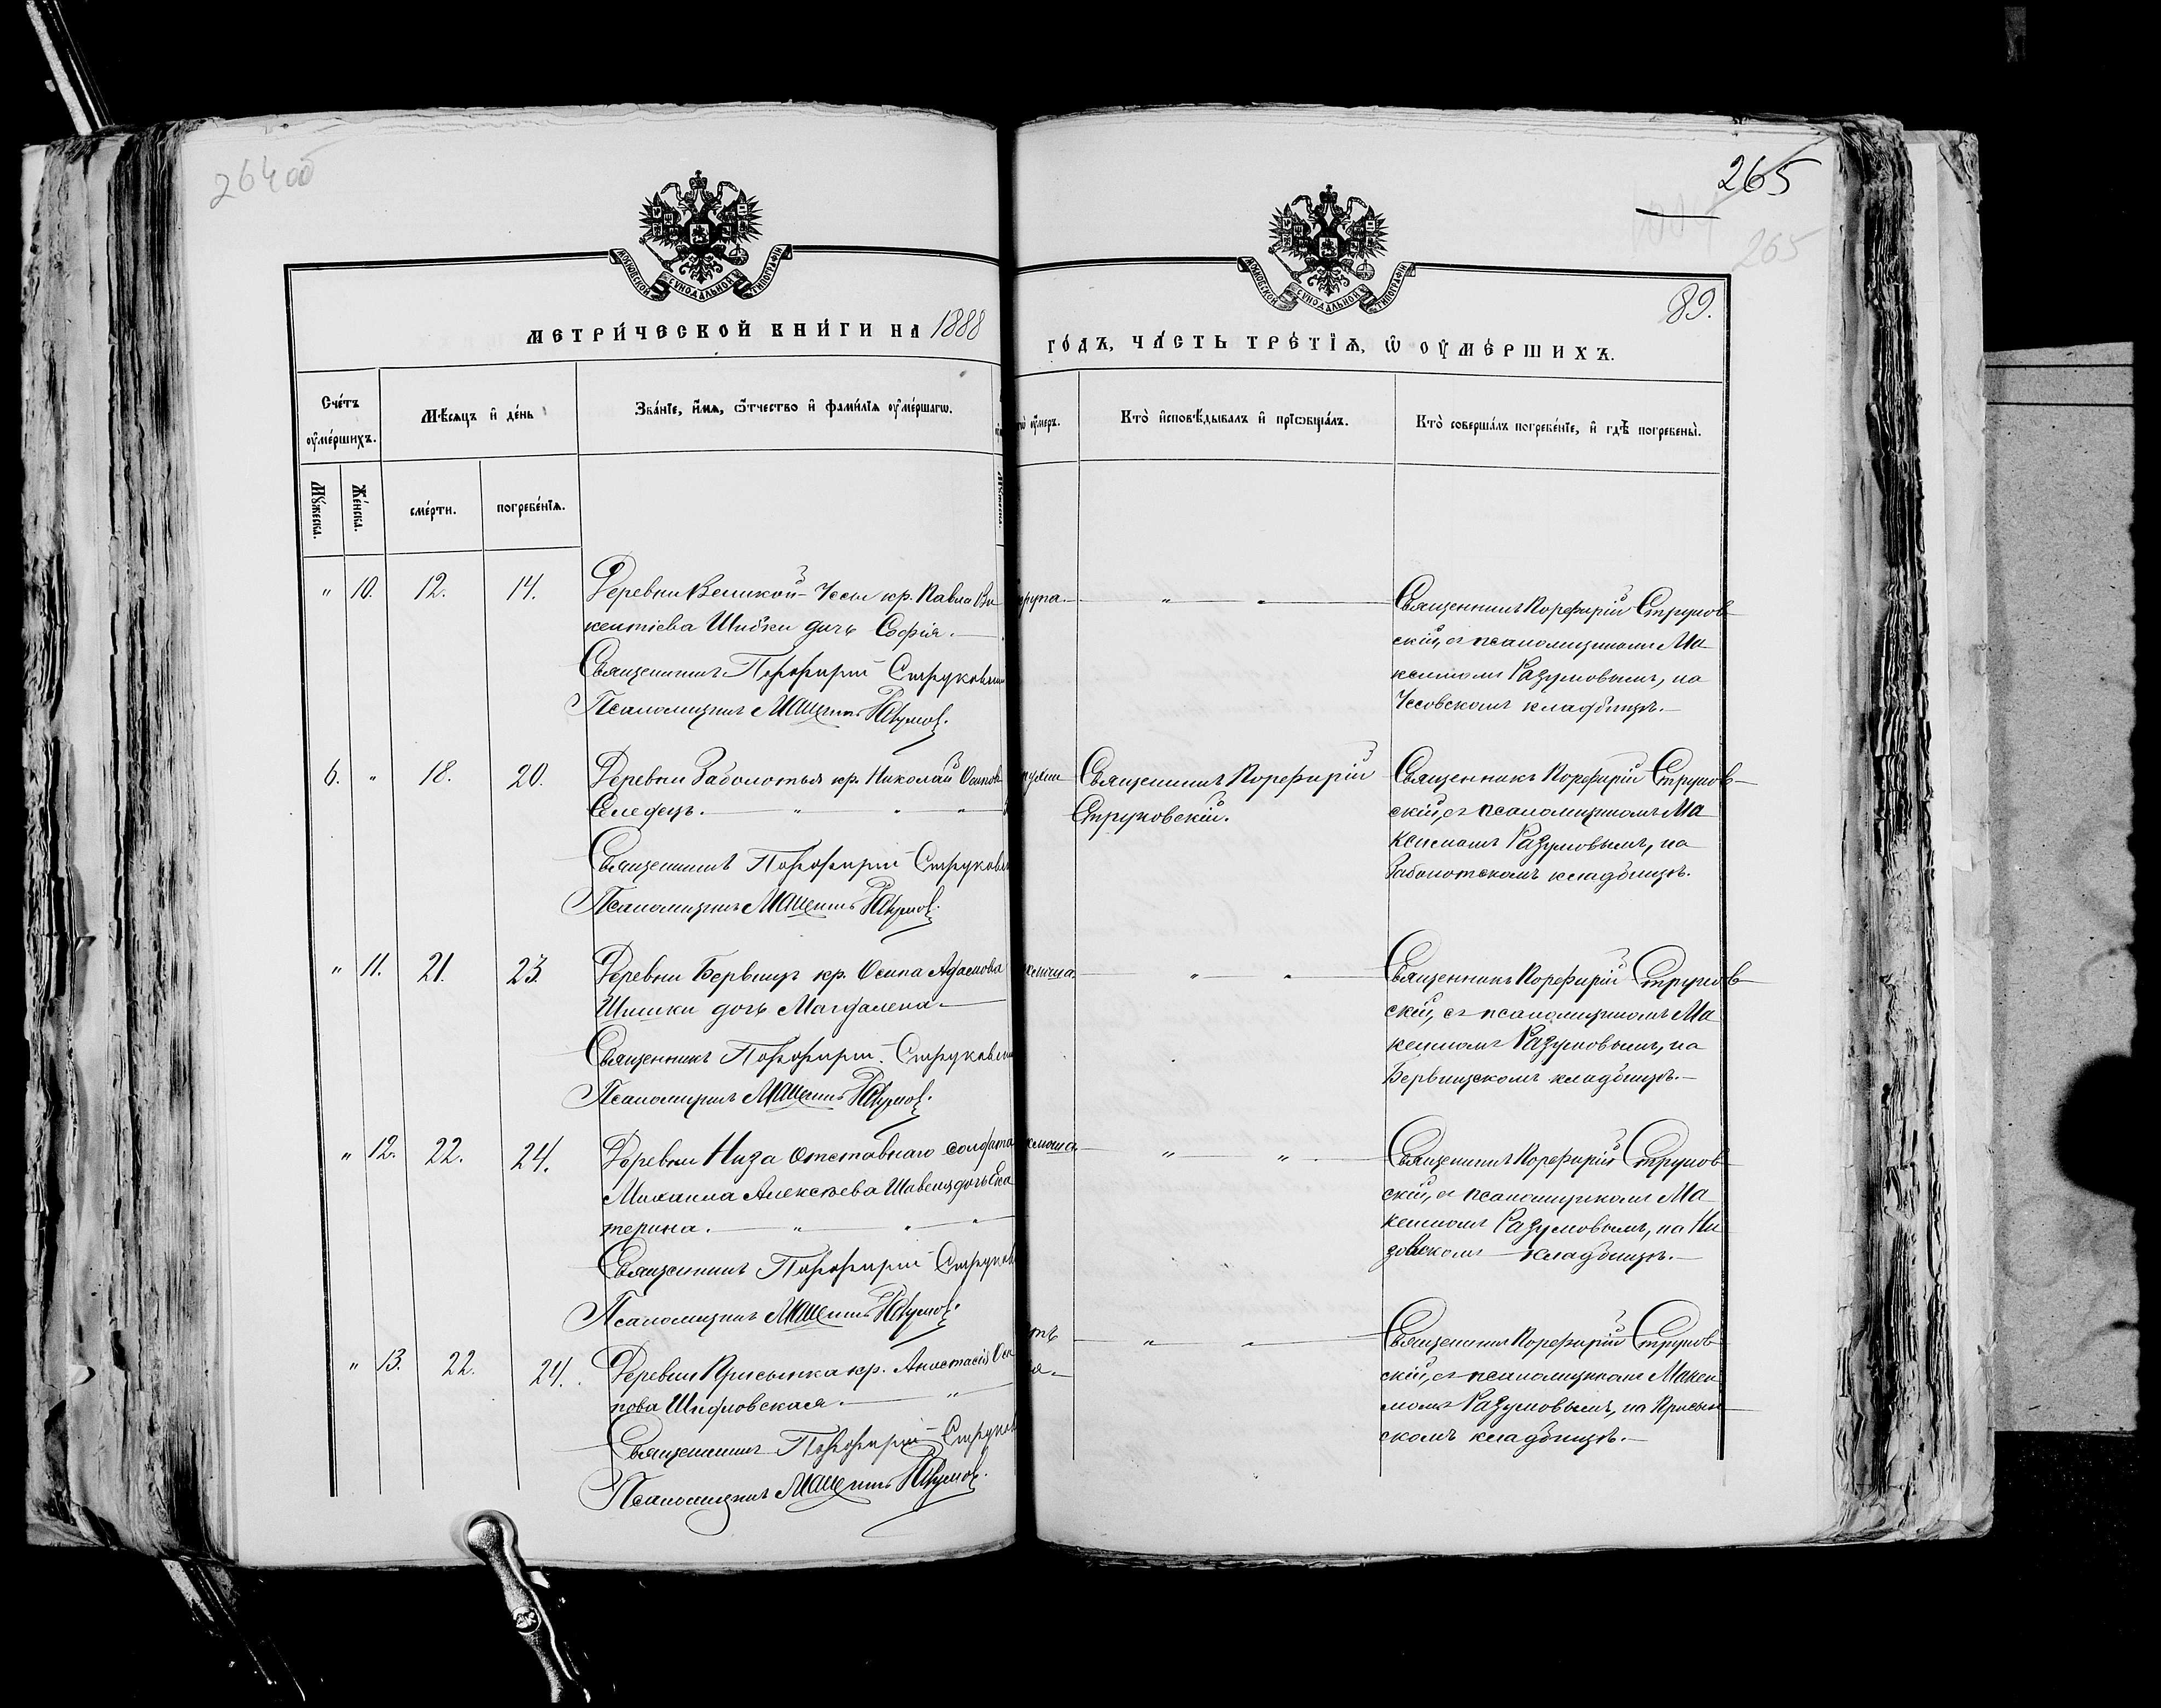 264об
265
265
89.
МОСКОВСКОЙ СѴНОДАЛЬНОЙ ТИПОГРАФІИ
МОСКОВСКОЙ СѴНОДАЛЬНОЙ ТИПОГРАФІИ
МЕТРИ́ЧЕСКОЙ КНИ́ГИ НА 1888
ГО́ДЪ, ЧА́СТЬ ТРЕ́ТІѦ, Ѡ҆ ОУ҆МЕ́РШИХЪ.
Сче́тъ оу҆ме́ршихъ.
Мѣ́сяцъ и҆ де́нь
Зва́нїе, и҆́мѧ, ѻ҆́тчество и҆ фами́лїѧ оу҆ме́ршагѡ.
оу҆́меръ.
Кто̀ и҆сповѣ́дывалъ и҆ прїѡбща́лъ.
Кто̀ соверша́лъ погребе́нїе, и҆ гдѣ̀ погребены̀.
Мꙋ́жеска.
Же́нска.
сме́рти.
погребе́нїѧ.
" 10. 12. 14.
Деревни Великой-Уссы кр. Павла Ви
кентіева Шибки дочь Софія.
Священникъ Порфирій Струковскій
Псаломщикъ Максимъ Разумов.
крупа.
" "
Священникъ Порфирій Струков
скій, съ псаломщикомъ Ма
ксимомъ Разумовымъ, на
Уссовскомъ кладбищѣ.
6. " 18. 20.
Деревни Заболотья кр. Николай Осипов
Селедецъ. " " "
Священникъ Порфирій Струковск
Псаломщикъ Максимъ Разумов.
Священникъ Порфирій
Струковскій.
Священникъ Порфирій Струков
скій, съ псаломщикомъ Ма
ксимомъ Разумовымъ, на
Заболотскомъ кладбищѣ.
" 11. 21. 23.
Деревни Бервищъ кр. Осипа Адамова
Шишки дочь Магдалена
Священникъ Порфирій Струковскі
Псаломщикъ Максимъ Разумов.
" "
Священникъ Порфирій Струков
скій, съ псаломщикомъ Ма
ксимомъ Разумовымъ, на
Бервищскомъ кладбищѣ.
" 12. 22. 24.
Деревни Низа отставнаго солдата
Михаила Алексѣева Шавень дочь Ека
терина. " " "
Священникъ Порфирій Струков
Псаломщикъ Максимъ Разумов.
" "
Священникъ Порфирій Струков
скій, съ псаломщикомъ Ма
ксимомъ Разумовымъ, на Ни
зовскомъ кладбищѣ.
" 13. 22. 24.
Деревни Присынка кр. Анастасія Оси
пова Шидловская. "
Священникъ Порфирій Струков
Псаломщикъ Максимъ Разумов.
" "
Священникъ Порфирій Струков
скій, съ псаломщикомъ Макси
момъ Разумовымъ, на Присын
скомъ кладбищѣ.